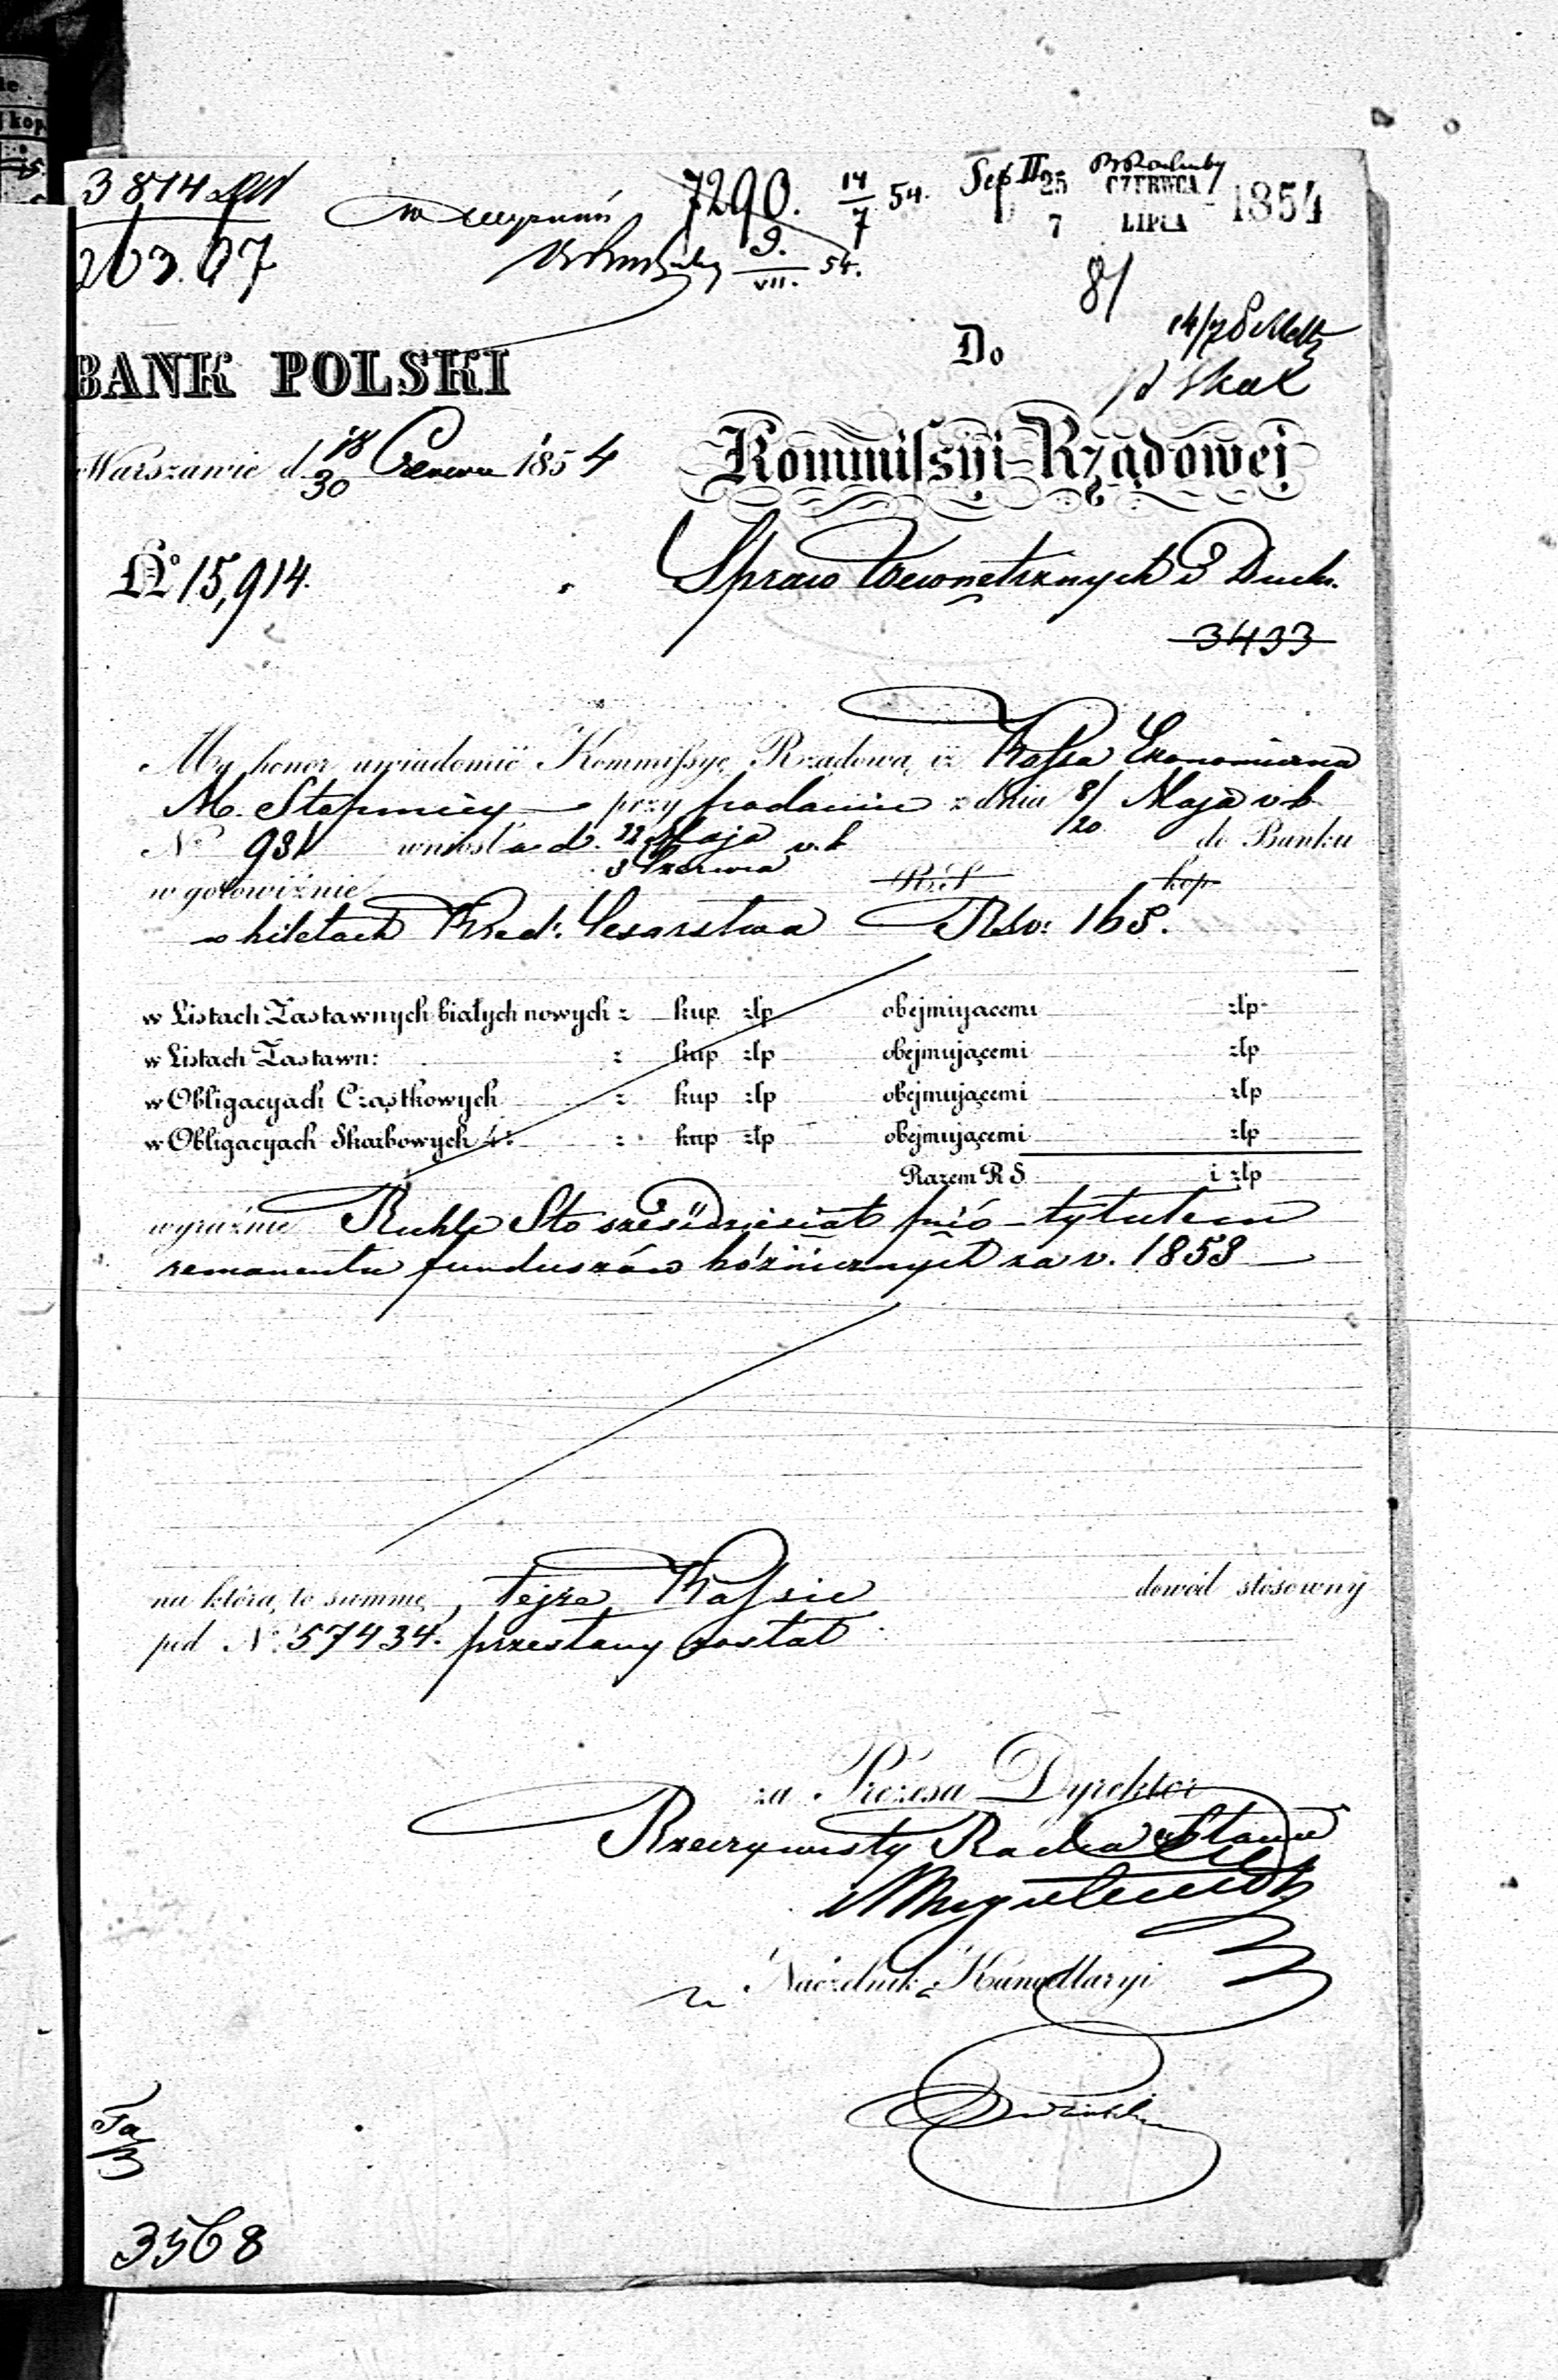 3874
263.07
7290. 14/7 54. Sep II 25 CZERWCA 1854
7 LIPCA
9. VII. 54.
81
Do
BANK POLSKI
Warszawie d. 18/30 Czerwca 1854
Kommissyi Rządowej
No 15,914.
Spraw Wewnętrznych i Duch.
3433
Ma honor uwiadomić Kommissyę Rządową iż Kassa Ekonomiczna
M. Stopnicy przy podaniu z dnia 8/20 Maja r. b.
No 931 wniosła d. 22 Maja r. b. do Banku
3 Czerwca
w gotowiźnie R. S. kop
w biletach Kred: Cesarstwa Rsr: 165.
w Listach Zastawnych białych nowych z kup złp obejmującemi złp
w Listach Zastawn: z kup złp obejmującemi złp
w Obligacyach Cząstkowych z kup złp obejmującemi złp
w Obligacyach Skarbowych 4: z kup złp obejmującemi złp
Razem R S i złp
wyraźnie Rubli Sto sześćdziesiąt pięć tytułem
remanentu funduszów bóżnicznych za r. 1853
na którą to summę, tejże Kassie dowód stosowny
pod No 57434. przesłany został
za Prezesa Dyrektor
Rzeczywisty Radca Stanu
Naczelnik Kancellaryi
3568